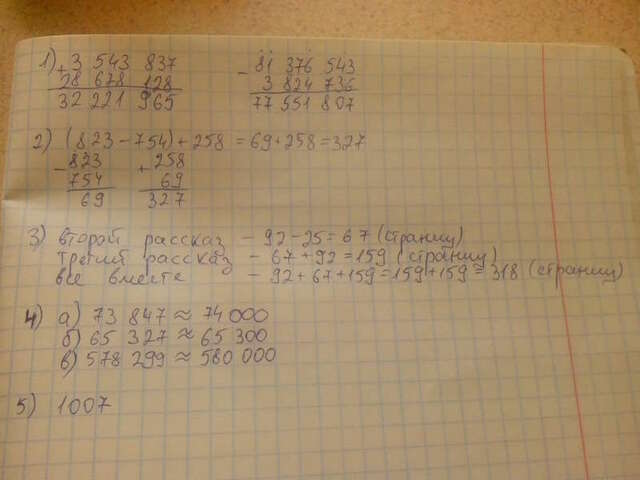 1) +3 543 837
28 678 128
32 221 965
- 81 376 543
3 824 736
77 551 807
2) (823-754)+258 = 69+258=327
-823
754
69
+258
69
327
3) второй рассказ - 92-25=67 (страниц)
третий рассказ - 67+92=159 (страниц)
все вместе - 92+67+159=159+159=318 (страниц)
4) а) 73 847 ≈ 74 000
б) 65 327 ≈ 65 300
в) 578 299 ≈ 580 000
5) 1007